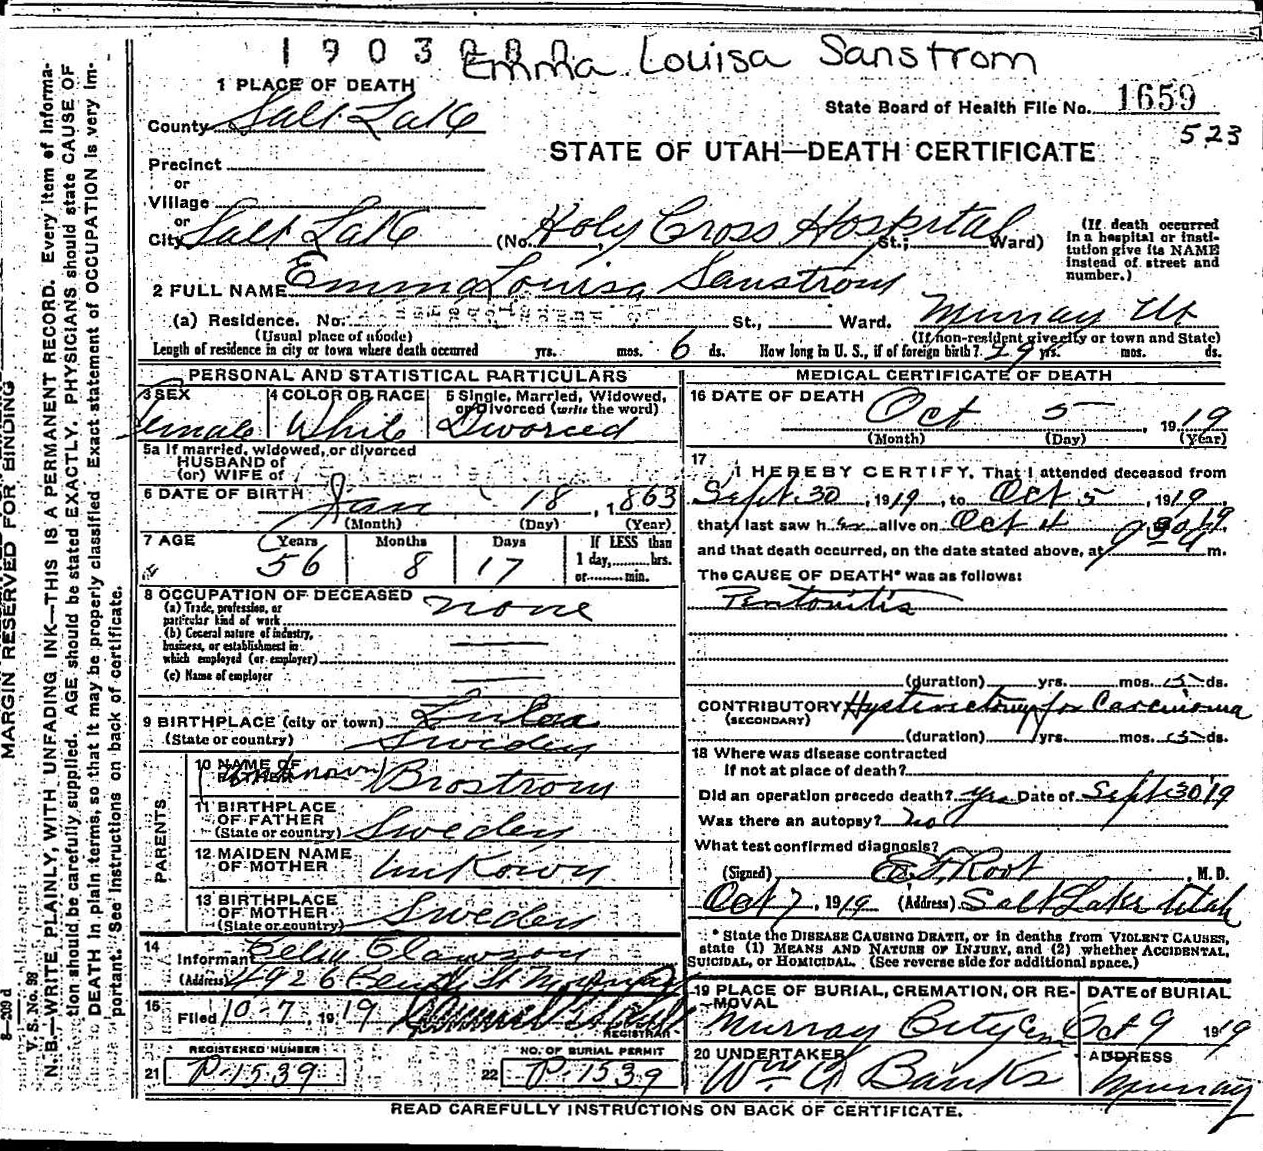 1903
Emma Louisa Sanstrom
1 PLACE OF DEATH
State Board of Health File No. 1659
County Salt Lake
523
STATE OF UTAH—DEATH CERTIFICATE
Precinct
or
Village
or
City Salt Lake (No. Holy Cross Hospital St.; Ward)
(If death occurred in a hospital or institution give its NAME instead of street and number.)
2 FULL NAME Emma Louisa Sanstrom
(a) Residence. No. St., Ward. Murray Ut
(Usual place of abode) (If non-resident give city or town and State)
Length of residence in city or town where death occurred yrs. mos. 6 ds. How long in U. S., if of foreign birth? 29 yrs. mos. ds.
PERSONAL AND STATISTICAL PARTICULARS
3 SEX Female
4 COLOR OR RACE White
5 Single, Married, Widowed, or Divorced (write the word) Divorced
5a If married, widowed, or divorced
HUSBAND of
(or) WIFE of
6 DATE OF BIRTH Jan 18, 1863
(Month) (Day) (Year)
7 AGE Years 56 Months 8 Days 17
If LESS than 1 day, hrs. or min.
8 OCCUPATION OF DECEASED none
(a) Trade, profession, or particular kind of work
(b) General nature of industry, business, or establishment in which employed (or employer)
(c) Name of employer
9 BIRTHPLACE (city or town)
(State or country) Sweden
PARENTS
10 NAME OF FATHER (Unknown) Brostrom
11 BIRTHPLACE OF FATHER (State or country) Sweden
12 MAIDEN NAME OF MOTHER Unkown
13 BIRTHPLACE OF MOTHER (State or country) Sweden
14 Informant Celia Clawson
(Address) 4926 St Murray
15 Filed 10-7, 1919
REGISTRAR
21 REGISTERED NUMBER P-1539
22 NO. OF BURIAL PERMIT P-1539
MEDICAL CERTIFICATE OF DEATH
16 DATE OF DEATH Oct 5, 1919
(Month) (Day) (Year)
17 I HEREBY CERTIFY, That I attended deceased from
Sept 30, 1919, to Oct 5, 1919,
that I last saw her alive on Oct 4 1919
and that death occurred, on the date stated above, at m.
The CAUSE OF DEATH* was as follows:
Peritonitis
(duration) yrs. mos. 5 ds.
CONTRIBUTORY Hysterectomy for Carcinoma
(SECONDARY)
(duration) yrs. mos. 5 ds.
18 Where was disease contracted
If not at place of death?
Did an operation precede death? yes Date of Sept 30 19
Was there an autopsy? no
What test confirmed diagnosis?
(Signed) E. F. Root, M. D.
Oct 7, 1919 (Address) Salt Lake Utah
* State the DISEASE CAUSING DEATH, or in deaths from VIOLENT CAUSES,
state (1) MEANS AND NATURE OF INJURY, and (2) whether ACCIDENTAL,
SUICIDAL, or HOMICIDAL. (See reverse side for additional space.)
19 PLACE OF BURIAL, CREMATION, OR REMOVAL Murray City Cem
DATE of BURIAL Oct 9 1919
20 UNDERTAKER Wm A Banks
ADDRESS Murray
READ CAREFULLY INSTRUCTIONS ON BACK OF CERTIFICATE.
MARGIN RESERVED FOR BINDING
V. S. No. 98
N. B.—WRITE PLAINLY, WITH UNFADING INK—THIS IS A PERMANENT RECORD. Every item of Informa-
tion should be carefully supplied. AGE should be stated EXACTLY. PHYSICIANS should state CAUSE OF
DEATH in plain terms, so that it may be properly classified. Exact statement of OCCUPATION is very im-
portant. See instructions on back of certificate.